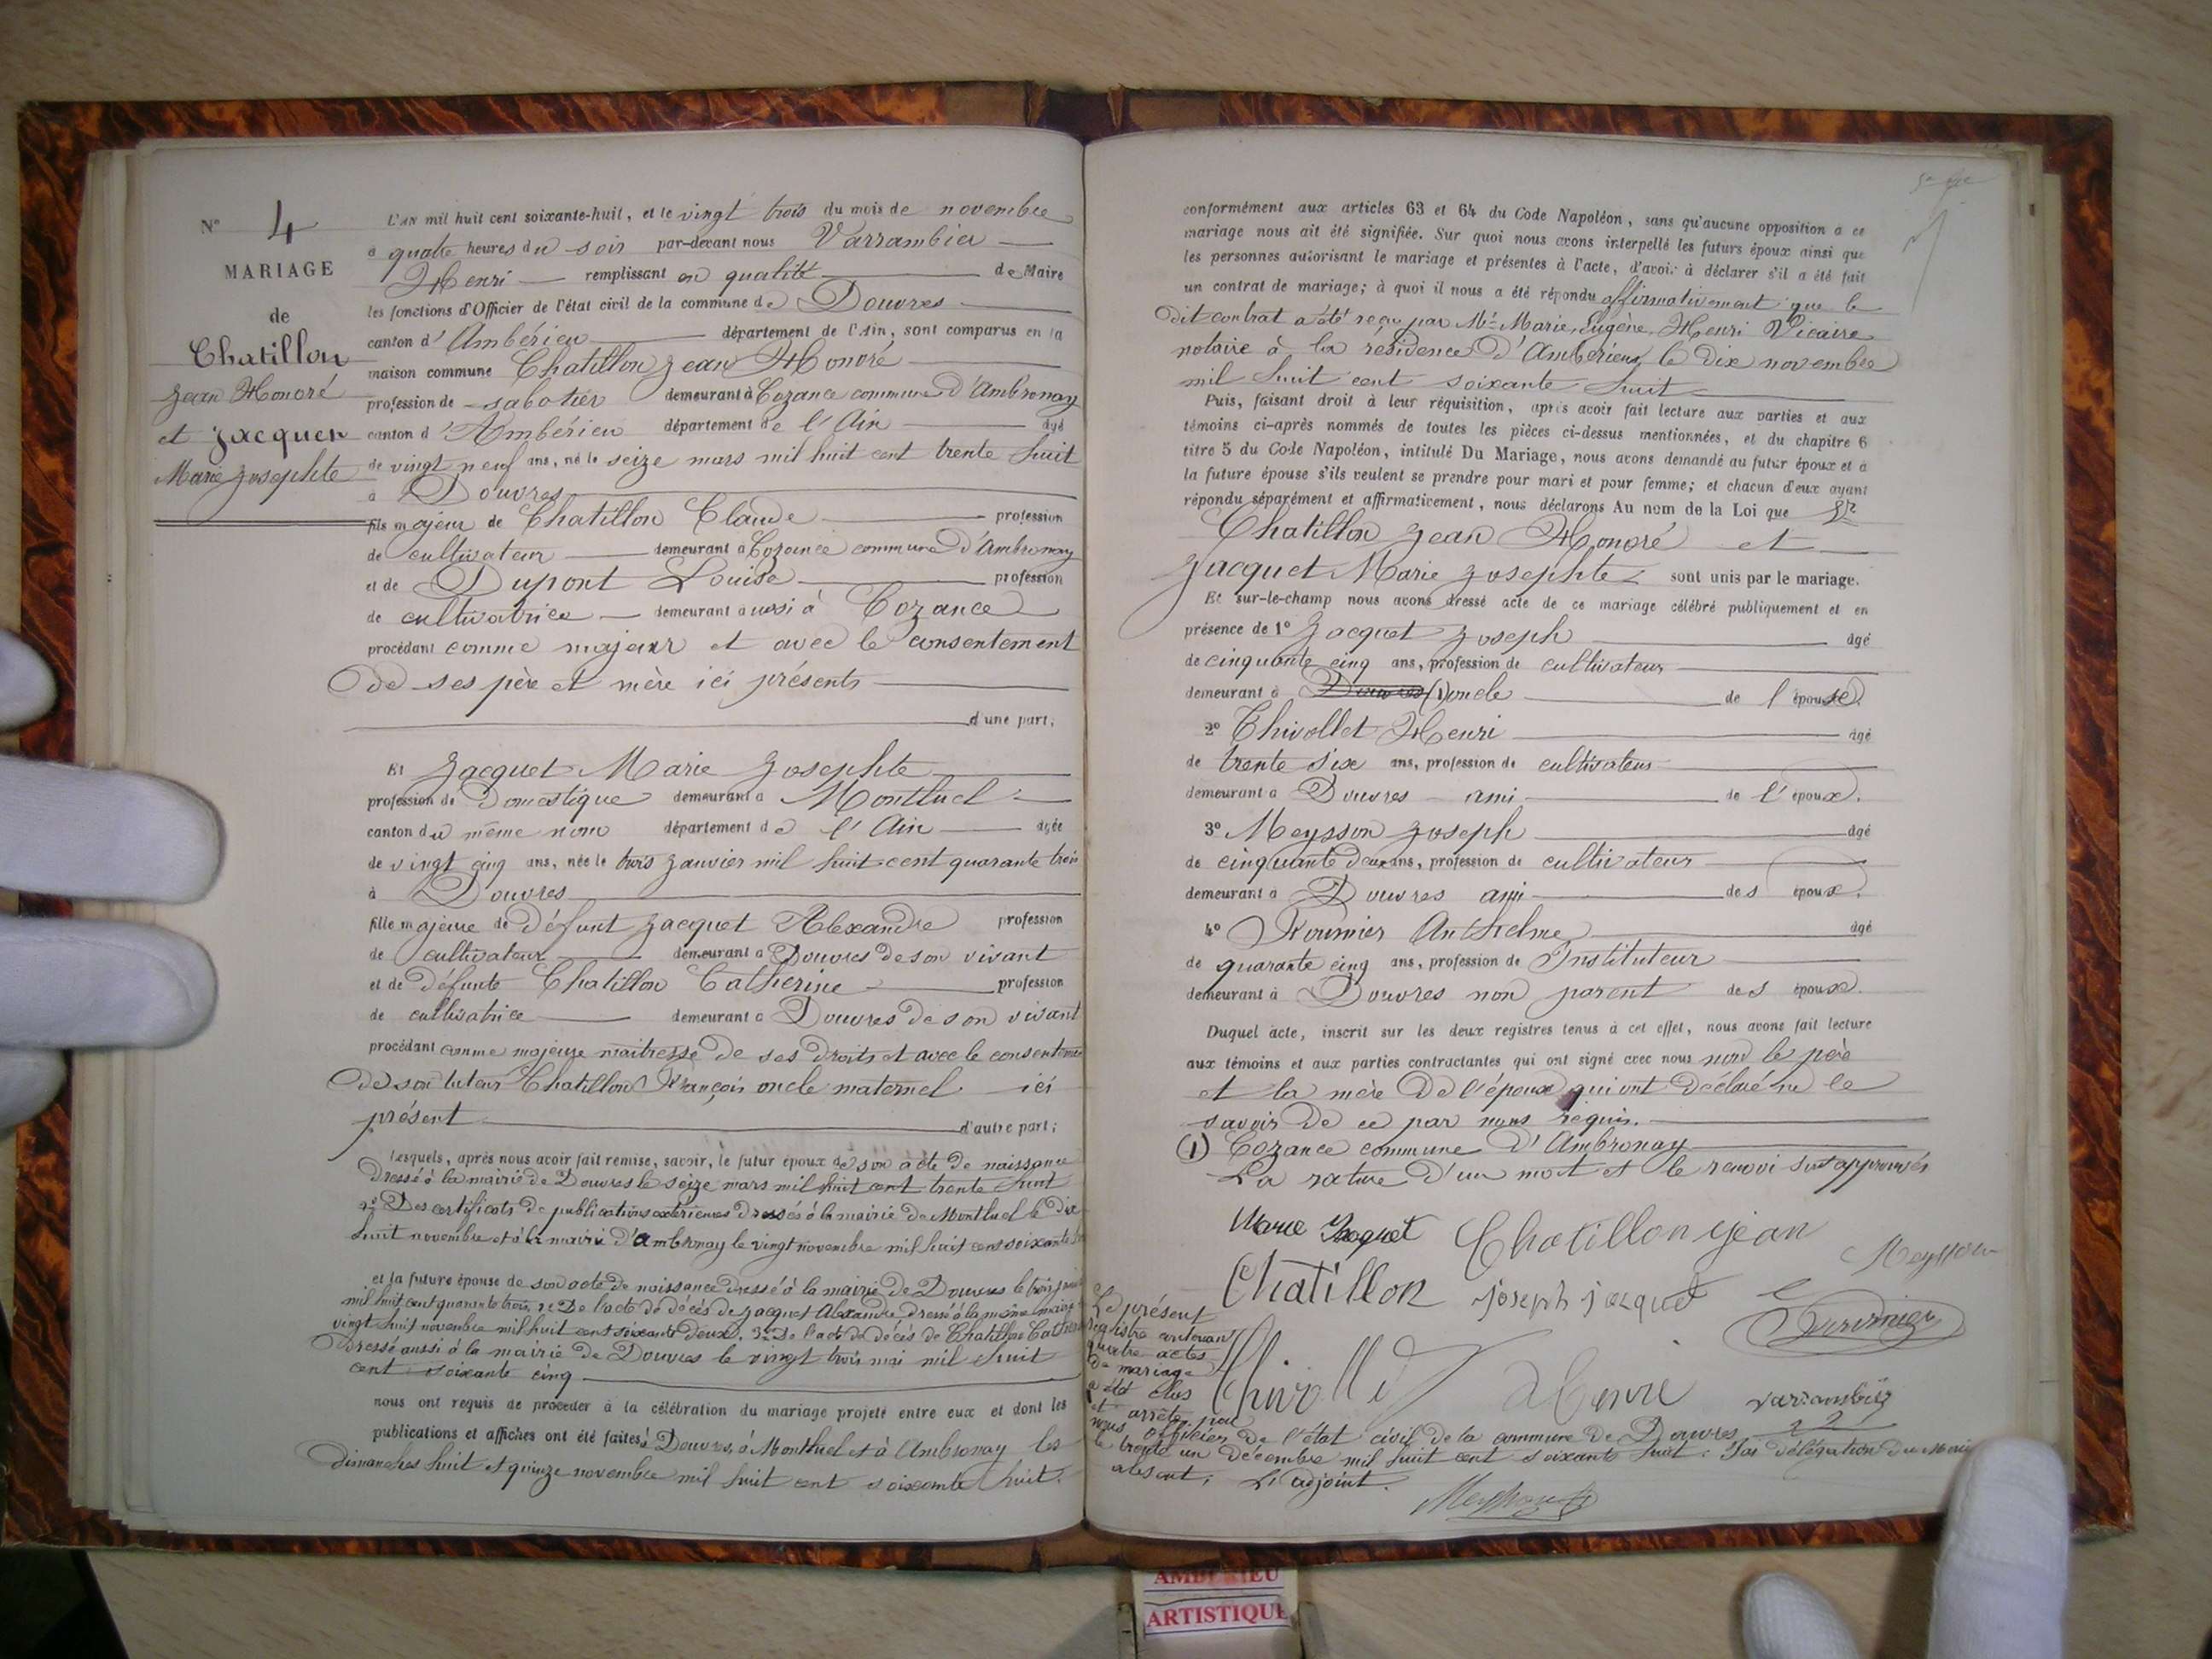 N° 4
MARIAGE
de
Chatillon
Jean Honoré
et Jacquet
Marie Josephte
L'AN mil huit cent soixante-huit, et le vingt trois du mois de novembre
à quatre heures du soir par-devant nous Varrambier
Henri remplissant en qualité de Maire
les fonctions d'Officier de l'état civil de la commune de Douvres
canton d'Ambérieu département de l'Ain, sont comparus en la
maison commune Chatillon Jean Honoré
profession de sabotier demeurant à Cozance commune d'Ambronay
canton d'Ambérieu département de l'Ain âgé
de vingt neuf ans, né le seize mars mil huit cent trente huit
à Douvres
fils majeur de Chatillon Claude profession
de cultivateur demeurant à Cozance commune d'Ambronay
et de Dupont Louise profession
de cultivatrice demeurant aussi à Cozance
procédant comme majeur et avec le consentement
de ses père et mère ici présents
d'une part;
Et Jacquet Marie Josephte
profession de Domestique demeurant à Montluel
canton du même nom département de l'Ain âgée
de vingt cinq ans, née le trois janvier mil huit cent quarante trois
à Douvres
fille majeure de défunt Jacquet Alexandre profession
de cultivateur demeurant à Douvres de son vivant
et de défunte Chatillon Catherine profession
de cultivatrice demeurant à Douvres de son vivant
procédant comme majeure maitresse de ses droits et avec le consenteme
de son tuteur Chatillon François oncle maternel ici
présent d'autre part;
Lesquels, après nous avoir fait remise, savoir, le futur époux de son acte de naissance
dressé à la mairie de Douvres le seize mars mil huit cent trente huit
2° Des certificats de publications extérieures dressés à la mairie de Montluel le dix
huit novembre et à la mairie d'Ambronay le vingt novembre mil huit cent soixante
et la future épouse de son acte de naissance dressé à la mairie de Douvres le trois
mil huit cent quarante trois, 2° De l'acte de décès de Jacquet Alexandre dressé à la même mairie
vingt huit novembre mil huit cent soixante deux, 3° De l'acte de décès de Chatillon
Dressé aussi à la mairie de Douvres le vingt trois mai mil huit
cent soixante cinq
nous ont requis de procéder à la célébration du mariage projeté entre eux et dont les
publications et affiches ont été faites à Douvres, à Montluel et à Ambronay les
dimanches huit et quinze novembre mil huit cent soixante huit.
conformément aux articles 63 et 64 du Code Napoléon, sans qu'aucune opposition à ce
mariage nous ait été signifiée. Sur quoi nous avons interpellé les futurs époux ainsi que
les personnes autorisant le mariage et présentes à l'acte, d'avoir à déclarer s'il a été fait
un contrat de mariage; à quoi il nous a été répondu affirmativement que le
dit contrat a été reçu par Me Marie, Eugène, Henri Vicaire
notaire à la résidence d'Ambérieu, le dix novembre
mil huit cent soixante huit
Puis, faisant droit à leur réquisition, après avoir fait lecture aux parties et aux
témoins ci-après nommés de toutes les pièces ci-dessus mentionnées, et du chapitre 6
titre 5 du Code Napoléon, intitulé Du Mariage, nous avons demandé au futur époux et à
la future épouse s'ils veulent se prendre pour mari et pour femme; et chacun d'eux ayant
répondu séparément et affirmativement, nous déclarons Au nom de la Loi que
Chatillon Jean Honoré et
Jacquet Marie Josephte sont unis par le mariage.
Et sur-le-champ nous avons dressé acte de ce mariage célébré publiquement et en
présence de 1° Jacquet Joseph âgé
de cinquante cinq ans, profession de cultivateur
demeurant à Douvres (1) oncle de l'épouse
2° Thivollet Henri âgé
de trente six ans, profession de cultivateur
demeurant à Douvres ami de l'époux.
3° Meysson Joseph âgé
de cinquante deux ans, profession de cultivateur
demeurant à Douvres ami des époux.
4° Fournier Anthelme âgé
de quarante cinq ans, profession de Instituteur
demeurant à Douvres non parent des époux.
Duquel acte, inscrit sur les deux registres tenus à cet effet, nous avons fait lecture
aux témoins et aux parties contractantes qui ont signé avec nous non le père
et la mère de l'époux qui ont déclaré ne le
savoir de ce par nous requis.
(1) Cozance commune d'Ambronay
La rature d'un mot et le renvoi sont approuvés
Marie Jaquet Chatillon jean Meysson
Chatillon joseph jacquet Fournier
Thivollet henri varrambier
Le présent
registre contenant
quatre actes
de mariage
a été clos
et arrêté par
nous officier de l'état civil de la commune de Douvres
le trente un Décembre mil huit cent soixante huit. Par délégation du Maire
absent, L'adjoint.
Meysson
AMBERIEU
ARTISTIQUE